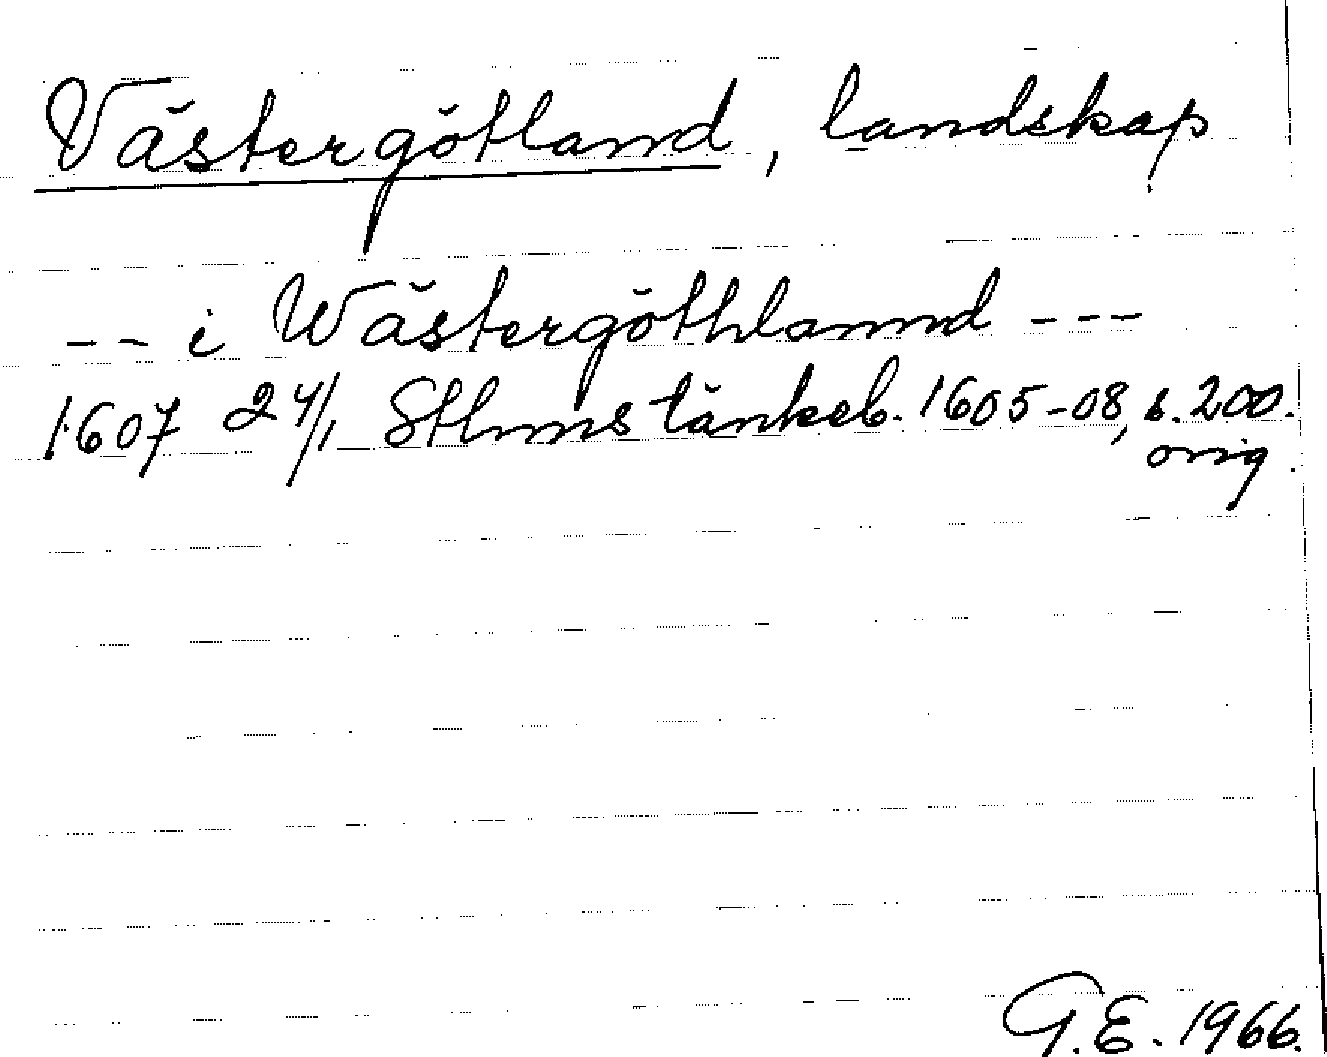 Västergötland, landskap
-- i Wästergöthlannd ---
1607 24/1 Sthms tänkeb. 1605-08, s. 200.
orig.
G.E. 1966.